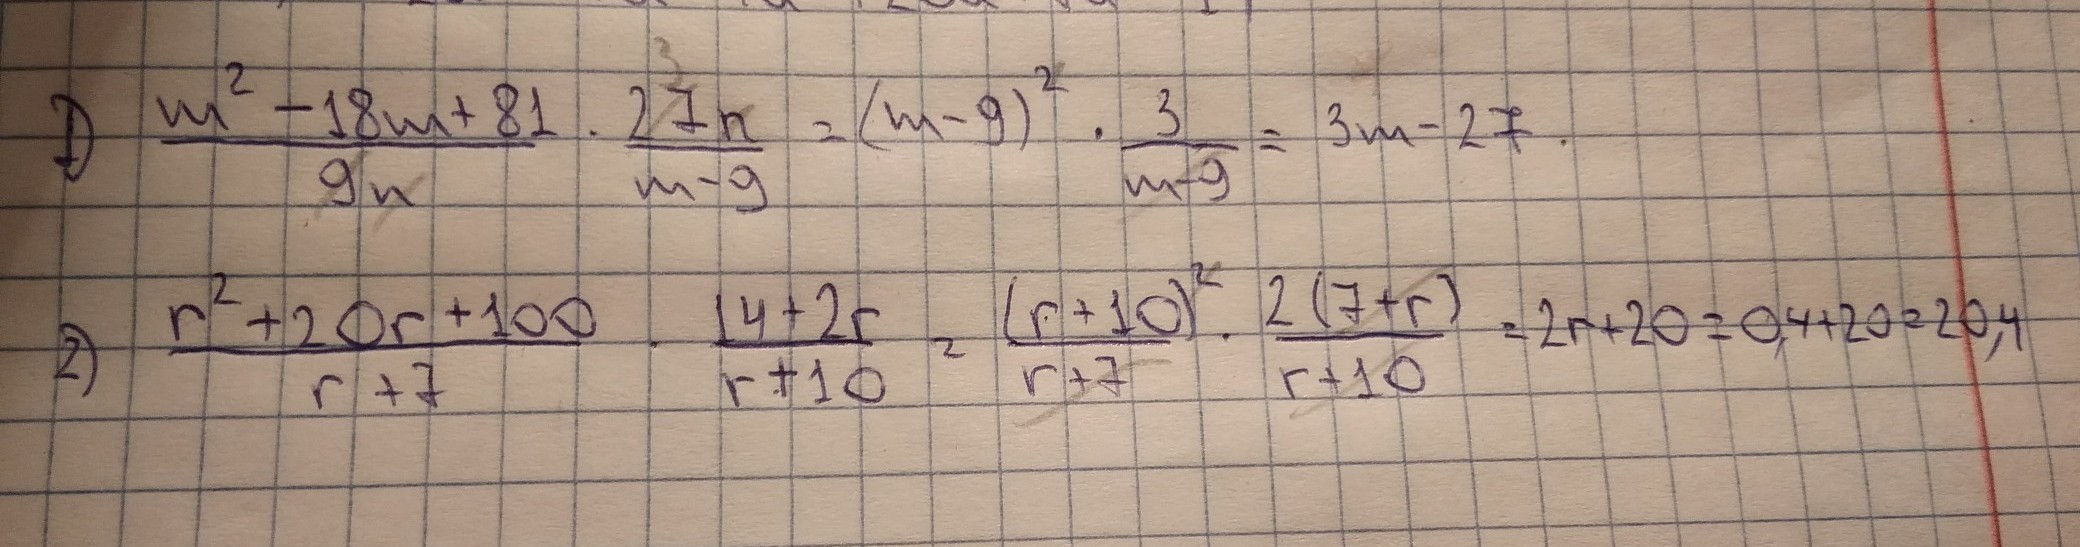 1) (m² - 18m + 81)/(9n) · (27n)/(m-9) = (m-9)² · 3/(m-9) = 3m - 27.
2) (r² + 20r + 100)/(r+7) · (14+2r)/(r+10) = (r+10)²/(r+7) · 2(7+r)/(r+10) = 2r+20 = 0,4+20 = 20,4